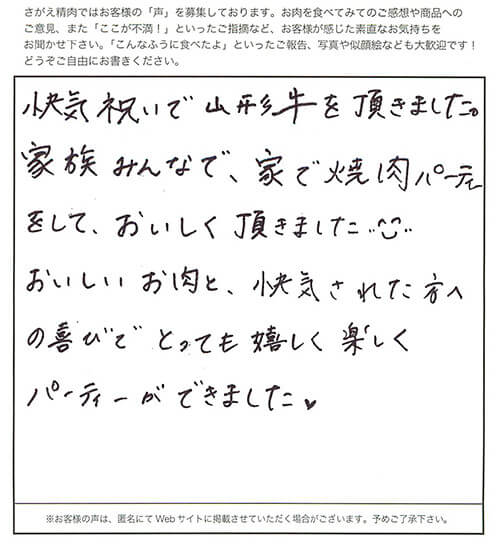 さがえ精肉ではお客様の「声」を募集しております。お肉を食べてみてのご感想や商品への
ご意見、また「ここが不満！」といったご指摘など、お客様が感じた素直なお気持ちを
お聞かせ下さい。「こんなふうに食べたよ」といったご報告、写真や似顔絵なども大歓迎です！
どうぞご自由にお書きください。
快気祝いで山形牛を頂きました。
家族みんなで、家で焼肉パーティ
をして、おいしく頂きました
おいしいお肉と、快気された方へ
の喜びでとっても嬉しく楽しく
パーティーができました♥
※お客様の声は、匿名にてWebサイトに掲載させていただく場合がございます。予めご了承下さい。